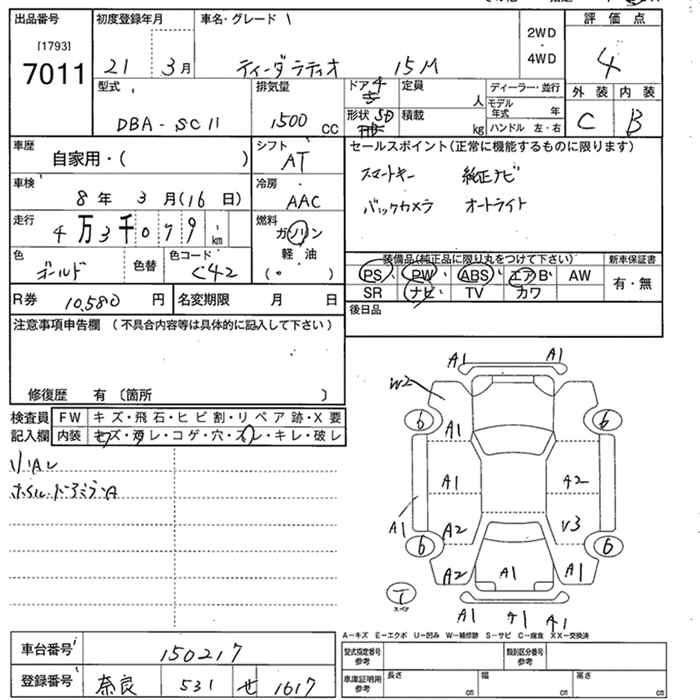 出品番号 初度登録年月 車名・グレード 2WD 評価点
[1793]
7011 21 3月 ティーダラティオ 15M 4WD 4
型式 排気量 ドア 4 5 定員 人 ディーラー・並行 外装 内装
DBA-SC11 1500 cc 形状 SD 積載 kg モデル年式 年 C B
ハンドル 左・右
車歴 自家用・( ) シフト AT セールスポイント(正常に機能するものに限ります)
車検 8年 3月(16日) 冷房 AAC スマートキー 純正ナビ
走行 4万3千079 km 燃料 ガソリン バックカメラ オートライト
軽油
( )
色 ゴールド 色替 色コード C42 装備品(純正品に限り丸をつけて下さい) 新車保証書
PS PW ABS エアB AW 有・無
SR ナビ TV カワ
R券 10,580 円 名変期限 月 日 後日品
注意事項申告欄 (不具合内容等は具体的に記入して下さい)
修復歴 有 〔箇所 〕
検査員記入欄 FW キズ・飛石・ヒビ割・リペア跡・X要
内装 キズ・汚レ・コゲ・穴・スレ・キレ・破レ
リAレ
ホイル、ドアミラーA
A1 A1
W2
6 6
A1
A1 A2
A1 A2 V3
6 6
A2 A1 A1
T
スペア
A1 A1 A1
A-キズ E-エクボ U-凹み W-補修跡 S-サビ C-腐食 XX-交換済
車台番号 150217 型式指定番号参考 類別区分番号参考
登録番号 奈良 531 せ 1617 車庫証明用参考 長さ cm 幅 cm 高さ cm